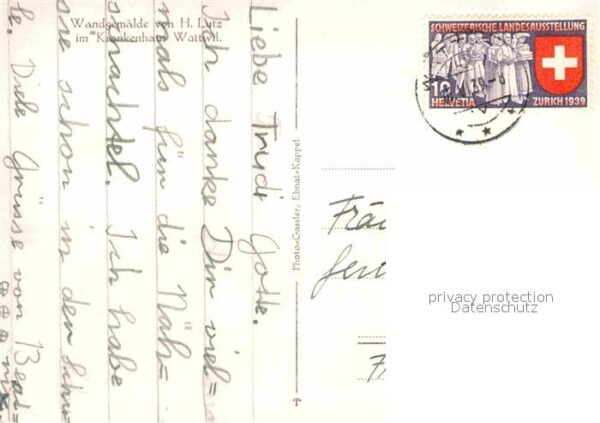 Wandgemälde von H. Lutz
im Krankenhaus Wattwil.
Liebe Trudi Gotte.
Ich danke Dir viel=
mals für die Näh=
schachtel. Ich habe
sie schon in der Schu=
le. Viele Grüsse von Beat=
Photo=Gassler, Ebnat=Kappel
SCHWEIZERISCHE LANDESAUSSTELLUNG
HELVETIA
ZÜRICH 1939
privacy protection
Datenschutz